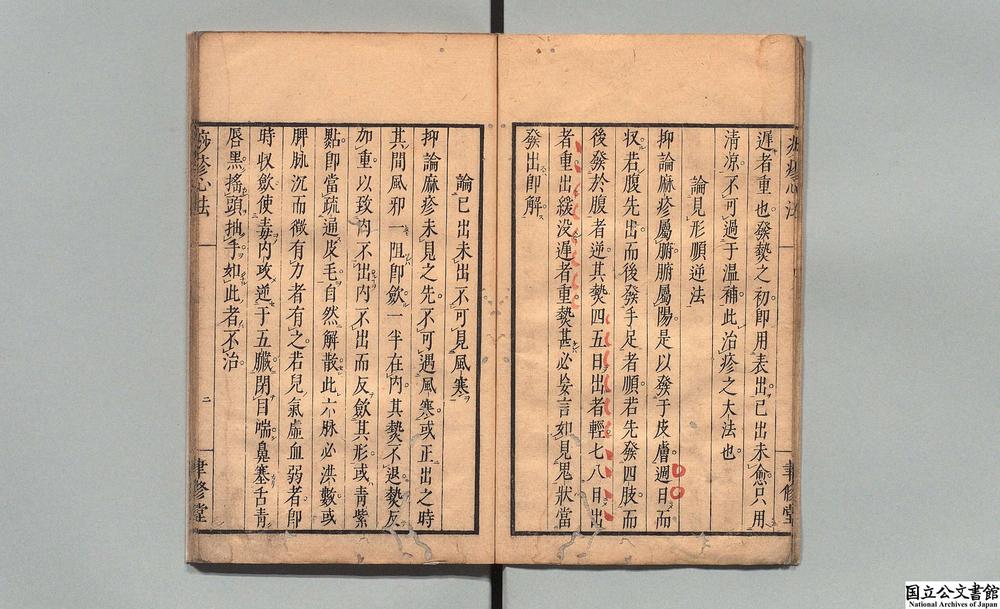 遲者重也發𤍠之初即用表出已出未愈只用
清凉不可過于温補此治疹之大法也
論見形順逆法
抑論麻疹屬腑腑屬陽是以發于皮膚週日而
収若腹先出而後發手足者順若先發四肢而
後發於腹者逆其𤍠四五日出者輕七八日出
者重出緩没遲者重𤍠甚必妄言如見鬼狀當
發出即解
疹心法
聿修堂
論已出未出不可見風寒
抑論麻疹未見之先不可遇風寒或正出之時
其間風邪一阻即歛一半在内其𤍠不退𤍠反
加重以致肉不出内不出而反歛其形或青紫
點即當疏通皮毛自然解散此六脉必洪數或
脾脉沉而微有力者有之若兒氣虚血弱者即
時収歛使毒内攻逆于五臟閉目喘鼻塞舌青
唇黑搖頭抽手如此者不治
疹心法
二
聿修堂
国立公文書館
National Archives of Japan